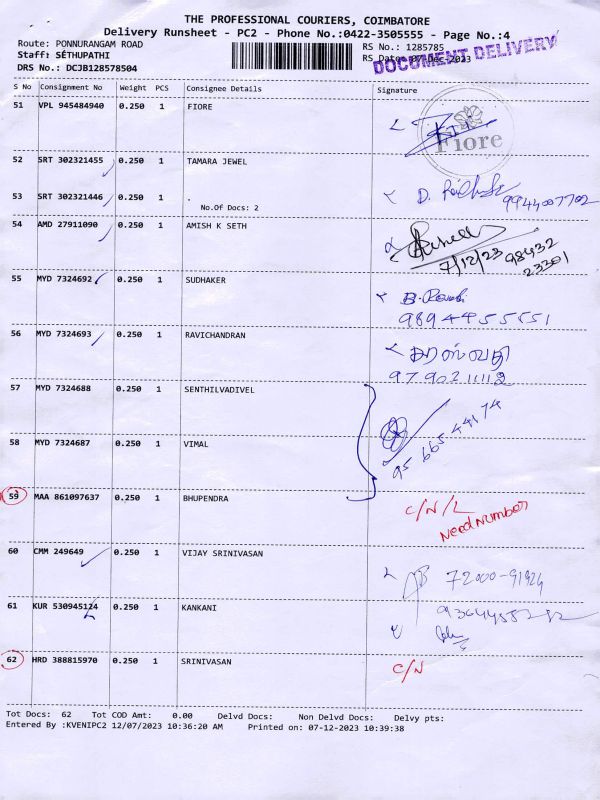 THE PROFESSIONAL COURIERS, COIMBATORE
Delivery Runsheet - PC2 - Phone No.:0422-3505555 - Page No.:4
Route: PONNURANGAM ROAD
RS No.: 1285785
Staff: SETHUPATHI
RS Date: 07-Dec-2023
DOCUMENT DELIVERY
DRS No.: DCJB128578504
S No Consignment No Weight PCS Consignee Details Signature
51 VPL 945484940 0.250 1 FIORE
Fiore
52 SRT 302321455 0.250 1 TAMARA JEWEL
53 SRT 302321446 0.250 1 .
No.Of Docs: 2
9944007702
54 AMD 27911090 0.250 1 AMISH K SETH
7/12/23 98432
23301
55 MYD 7324692 0.250 1 SUDHAKER
9894455551
56 MYD 7324693 0.250 1 RAVICHANDRAN
9790211112
57 MYD 7324688 0.250 1 SENTHILVADIVEL
95 665 44174
58 MYD 7324687 0.250 1 VIMAL
59 MAA 861097637 0.250 1 BHUPENDRA
C/N/L
NEED NUMBER
60 CMM 249649 0.250 1 VIJAY SRINIVASAN
72000-91924
61 KUR 530945124 0.250 1 KANKANI
62 HRD 388815970 0.250 1 SRINIVASAN
C/N
Tot Docs: 62 Tot COD Amt: 0.00 Delvd Docs: Non Delvd Docs: Delvy pts:
Entered By :KVENIPC2 12/07/2023 10:36:20 AM Printed on: 07-12-2023 10:39:38